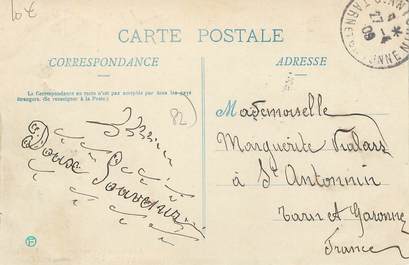 10€
CARTE POSTALE
CORRESPONDANCE
ADRESSE
La Correspondance au recto n'est pas acceptée par tous les pays
étrangers. (Se renseigner à la Poste.)
82
Doux Souvenir
Mademoiselle
Marguerite
à St Antonnin
Tarn et Garonne
France